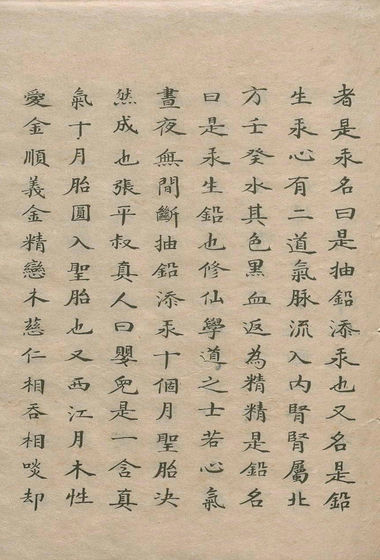 者是汞名曰是抽鉛添汞也又名是鉛
生汞心有二道氣脉流入内腎腎屬北
方壬癸水其色黑血返為精精是鉛名
曰是汞生鉛也修仙學道之士若心氣
晝夜無間斷抽鉛添汞十個月聖胎决
然成也張平叔真人曰嬰兒是一含真
氣十月胎圓入聖胎也又西江月木性
愛金順義金精戀木慈仁相吞相啖却